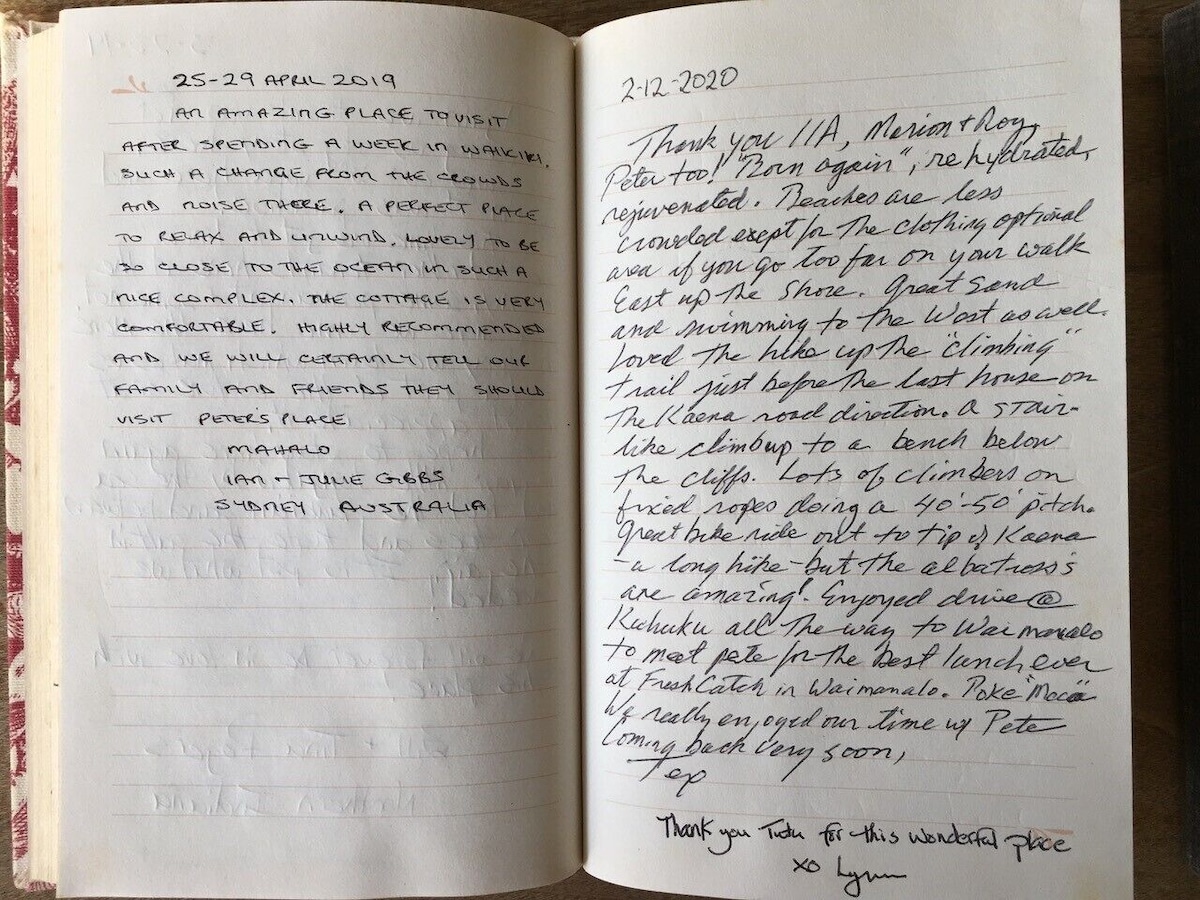 25-29 APRIL 2019
AN AMAZING PLACE TO VISIT
AFTER SPENDING A WEEK IN WAIKIKI.
SUCH A CHANGE FROM THE CROWDS
AND NOISE THERE. A PERFECT PLACE
TO RELAX AND UNWIND. LOVELY TO BE
SO CLOSE TO THE OCEAN IN SUCH A
NICE COMPLEX. THE COTTAGE IS VERY
COMFORTABLE. HIGHLY RECOMMENDED
AND WE WILL CERTAINLY TELL OUR
FAMILY AND FRIENDS THEY SHOULD
VISIT PETER'S PLACE
MAHALO
IAN + JULIE GIBBS
SYDNEY AUSTRALIA
2-12-2020
Thank you 11A, Marion + Roy,
Peter too! "Born again", rehydrated,
rejuvenated. Beaches are less
crowded exept for the clothing optional
area if you go too far on your walk
East up the shore. Great sand
and swimming to the West as well.
Loved the hike up the "climbing"
trail just before the last house on
the Kaena road direction. A stair-
like climb up to a bench below
the cliffs. Lots of climbers on
fixed ropes doing a 40'-50' pitch.
Great bike ride out to tip of Kaena
- a long hike - but the albatross's
are amazing! Enjoyed drive @
Kuhuku all the way to Waimanalo
to meet pete for the best lunch ever
at Fresh Catch in Waimanalo. Poke
We really enjoyed our time w/ Pete
Coming back very soon,
Tex
Thank you Tutu for this wonderful place
xo Lynn